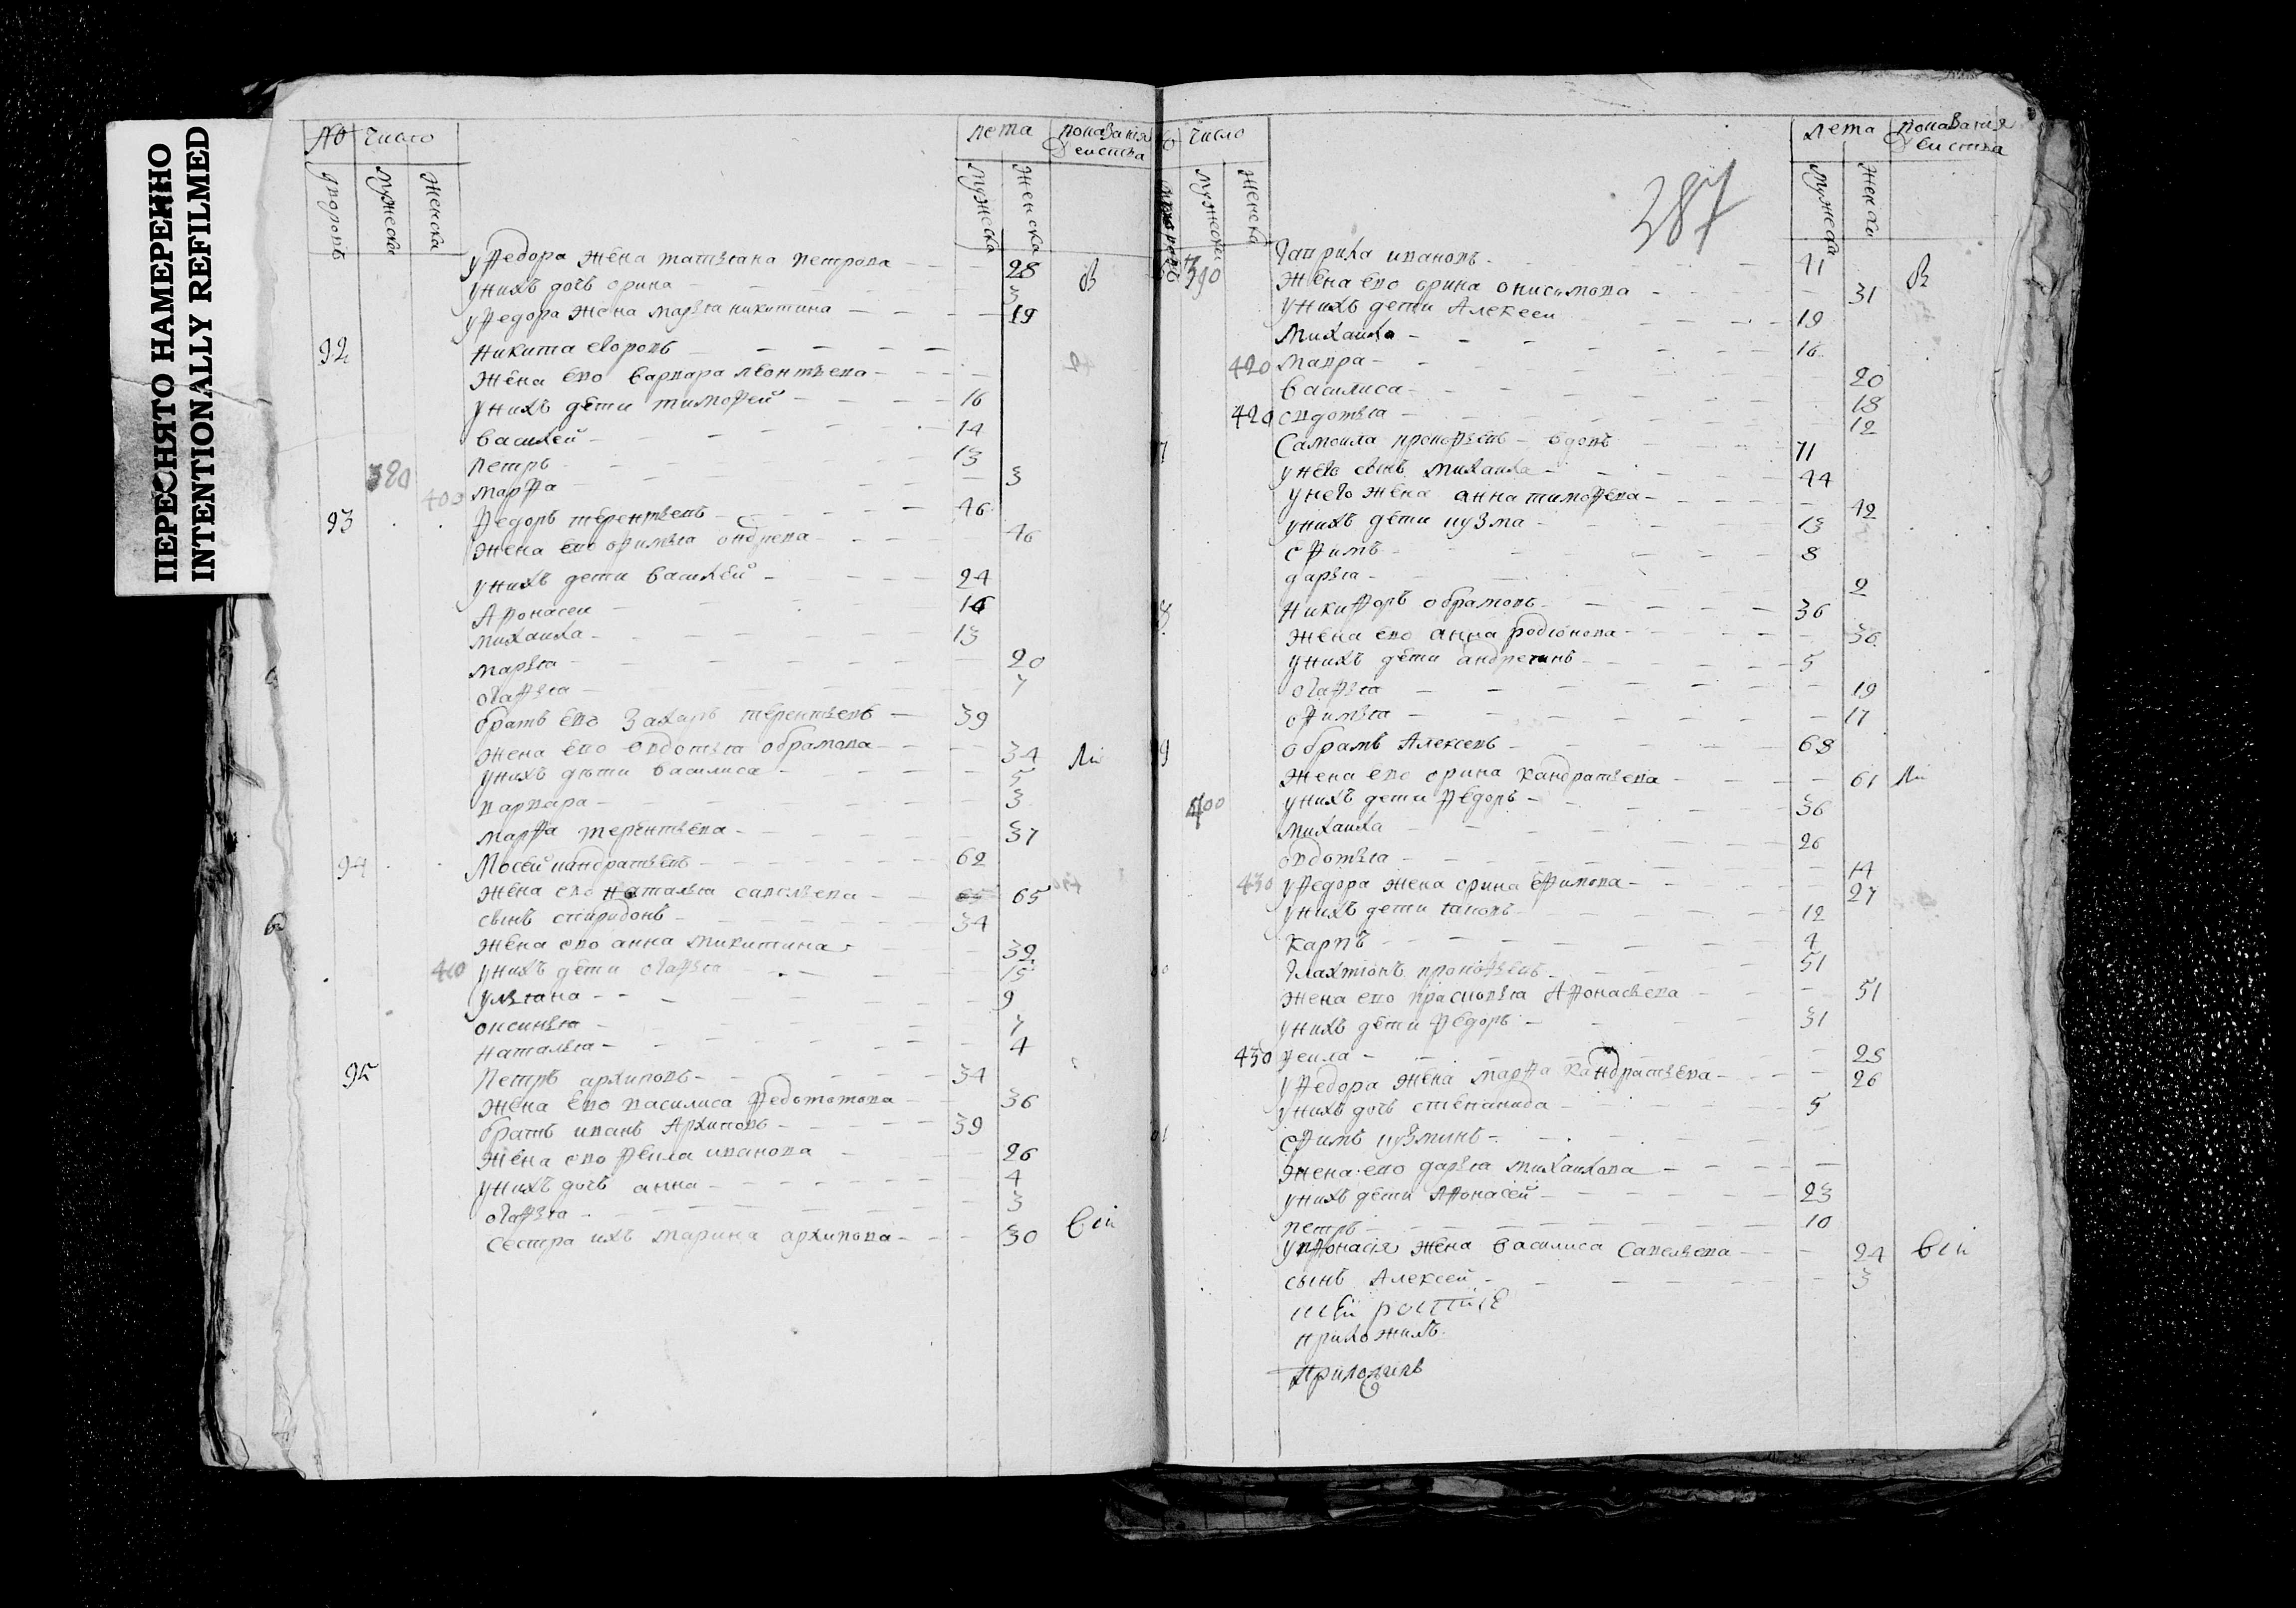 ПЕРЕСНЯТО НАМЕРЕННО
INTENTIONALLY REFILMED
№ число лета показания
действа
дворовъ мужеска женска мужеска женска
у Федора жена татьяна петрова 28 В
у нихъ дочь орина 3
у Федора жена марья никитина 19
92 Никита
жена ево варвара леонтьева
у нихъ дети тимофей 16
василей 14
380 Петръ 13
400 марфа 3
93 Федоръ терентьевъ 46
жена ево офимья ондрева 46
у нихъ дети василей 24
Афонасеи 16
михаила 13
марья 20
огафья 7
братъ ево Захаръ терентьевъ 39
жена ево овдотья обрамова 34 Ли
у нихъ дети василиса 5
варвара 3
марфа терентьева 37
94 Мосей кандратьевъ 62
жена ево наталья савельева 65 65
сынъ спиридонъ 34
жена ево анна микитина 32
410 у нихъ дети огафья 15
ульяна 9
оксинья 7
наталья 4
95 Петръ архиповъ 34
жена ево василиса Федототова 36
братъ иванъ Архиповъ 39
жена ево Фекла иванова 26
у нихъ дочь анна 4
огафья 3
сестра ихъ марина архипова 30 Сіи
число лета показания
действа
мужеска женска мужеска женска
387
390 Гаврила ивановъ 41 В
жена ево орина онисимова 31
у нихъ дети Алексеи 19
михаила 16
420 мавра 20
василиса 18
420 овдотья 12
7 Самоила прокофьевъ вдовъ 71
у него сынъ михаила 44
у него жена анна тимофева 42
у нихъ дети кузма 13
ефимъ 8
дарья 2
8 Никифоръ обрамовъ 36
жена ево анна родіонова 36
у нихъ дети андреянъ 5
огафья 19
офимья 17
9 обрамъ Алексевъ 68
жена ево орина кандратьева 61 Ли
400 у нихъ дети Федоръ 36
михаила 26
овдотья 14
430 у Федора жена орина ефимова 27
у нихъ дети 12
карпъ 4
00 Галахтіонъ прокофьевъ 51
жена ево прасковья Афонасьева 51
у нихъ дети Федоръ 31
430 Фекла 25
у Федора жена марфа кандратьева 26
у нихъ дочь степанида 5
01 ефимъ кузминъ
жена ево дарья михаилова
у нихъ дети Афонасей 23
петръ 10
у Афонасія жена василиса савельева 24 Сіи
сынъ Алексей 3
приложилъ
приложилъ